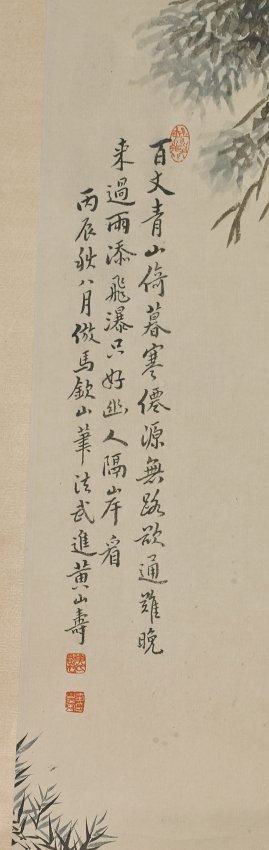 百丈青山倚暮寒僊源無路欲通難晚
來過雨添飛瀑只好幽人隔岸看
丙辰秋八月倣馬欽山筆法武進黃山壽